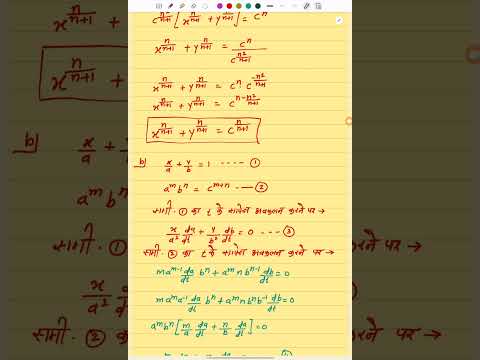 c^{n²/n+1} [x^{n/n+1} + y^{n/n+1}] = c^n
x^{n/n+1} + y^{n/n+1} = c^n / c^{n²/n+1}
x^{n/n+1} + y^{n/n+1} = c^n c^{-n²/n+1}
x^{n/n+1} + y^{n/n+1} = c^{n-n²/n+1}
x^{n/n+1} + y^{n/n+1} = c^{n/n+1}
b) x/a + y/b = 1 ---- ①
a^m b^n = c^{m+n} --- ②
समी. ① का t के सापेक्ष अवकलन करने पर →
x/a² da/dt + y/b² db/dt = 0 --- ③
समी. ② का t के सापेक्ष अवकलन करने पर →
m a^{m-1} da/dt b^n + a^m n b^{n-1} db/dt = 0
m a^m a^{-1} da/dt b^n + a^m n b^n b^{-1} db/dt = 0
a^m b^n [m/a da/dt + n/b db/dt] = 0